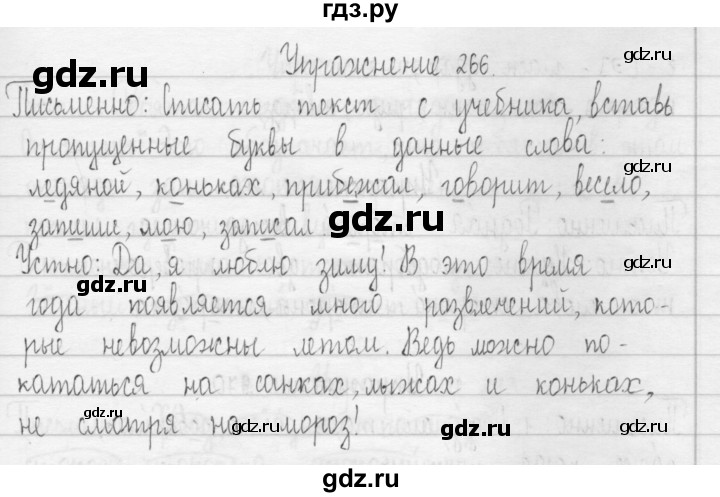 гдз.ру
Упражнение 266.
Письменно: Списать текст с учебника, вставь
пропущенные буквы в данные слова:
ледяной, коньках, прибежал, говорит, весело,
запиши, мою, записал
Устно: Да, я люблю зиму! В это время
года появляется много развлечений, кото-
рые невозможны летом. Ведь можно по-
кататься на санках, лыжах и коньках,
не смотря на мороз!
gdz.ru
gdz.ru
gdz.ru
gdz.ru
gdz.ru
gdz.ru
gdz.ru
gdz.ru
gdz.ru
gdz.ru
gdz.ru